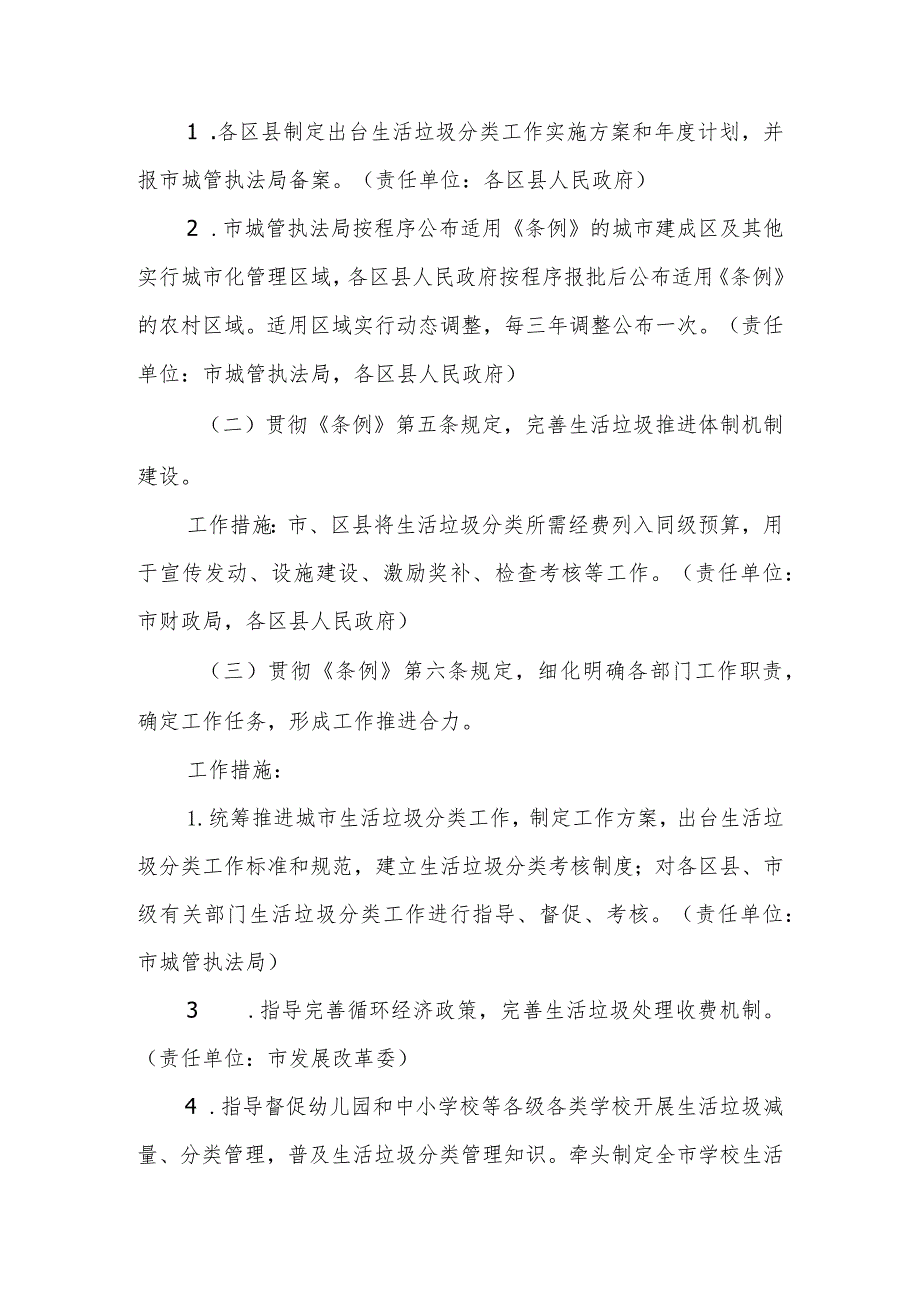 1 .各区县制定出台生活垃圾分类工作实施方案和年度计划，并
报市城管执法局备案。（责任单位：各区县人民政府）
2 .市城管执法局按程序公布适用《条例》的城市建成区及其他
实行城市化管理区域，各区县人民政府按程序报批后公布适用《条例》
的农村区域。适用区域实行动态调整，每三年调整公布一次。（责任
单位：市城管执法局，各区县人民政府）
（二）贯彻《条例》第五条规定，完善生活垃圾推进体制机制
建设。
工作措施：市、区县将生活垃圾分类所需经费列入同级预算，用
于宣传发动、设施建设、激励奖补、检查考核等工作。（责任单位：
市财政局，各区县人民政府）
（三）贯彻《条例》第六条规定，细化明确各部门工作职责，
确定工作任务，形成工作推进合力。
工作措施：
1.统筹推进城市生活垃圾分类工作，制定工作方案，出台生活垃
圾分类工作标准和规范，建立生活垃圾分类考核制度；对各区县、市
级有关部门生活垃圾分类工作进行指导、督促、考核。（责任单位：
市城管执法局）
3 .指导完善循环经济政策，完善生活垃圾处理收费机制。
（责任单位：市发展改革委）
4 .指导督促幼儿园和中小学校等各级各类学校开展生活垃圾减
量、分类管理，普及生活垃圾分类管理知识。牵头制定全市学校生活